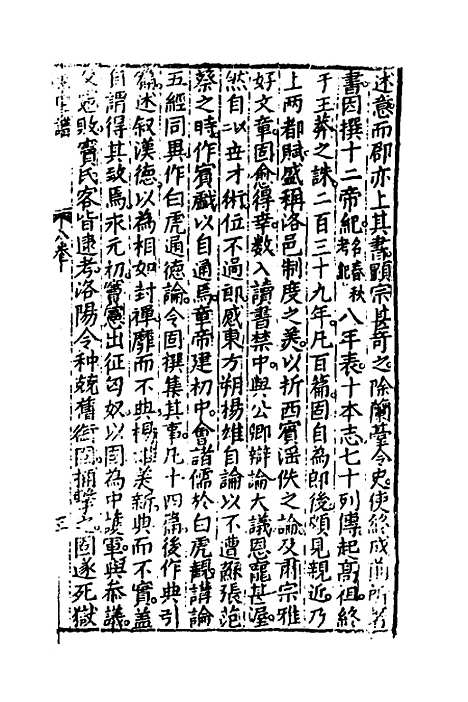 述意而郡亦上其書顯宗甚奇之除蘭臺令史使終成前所著
書因撰十二帝紀名春秋考紀八年表十本志七十列傳起高祖終
于王莽之誅二百三十九年凡百篇固自為郎後頗見親近乃
上兩都賦盛稱洛邑制度之美以折西賓淫佚之論及肅宗雅
好文章固愈得幸數入讀書禁中與公卿辯論大議恩寵甚渥
然自以二世才術位不過郎感東方朔揚雄自論以不遭蘇張范
蔡之時作賓戲以自通焉章帝建初中會諸儒於白虎觀講論
五經同異作白虎通德論令固撰集其事凡十四篇後作典引
篇述叙漢德以為相如封禪靡而不典楊雄美新典而不實蓋
自謂得其致焉永元初竇憲出征匈奴以固為中護軍與叅議
及憲敗竇氏客皆逮考洛陽令种兢舊銜固捕繫之固遂死獄
八卷
三